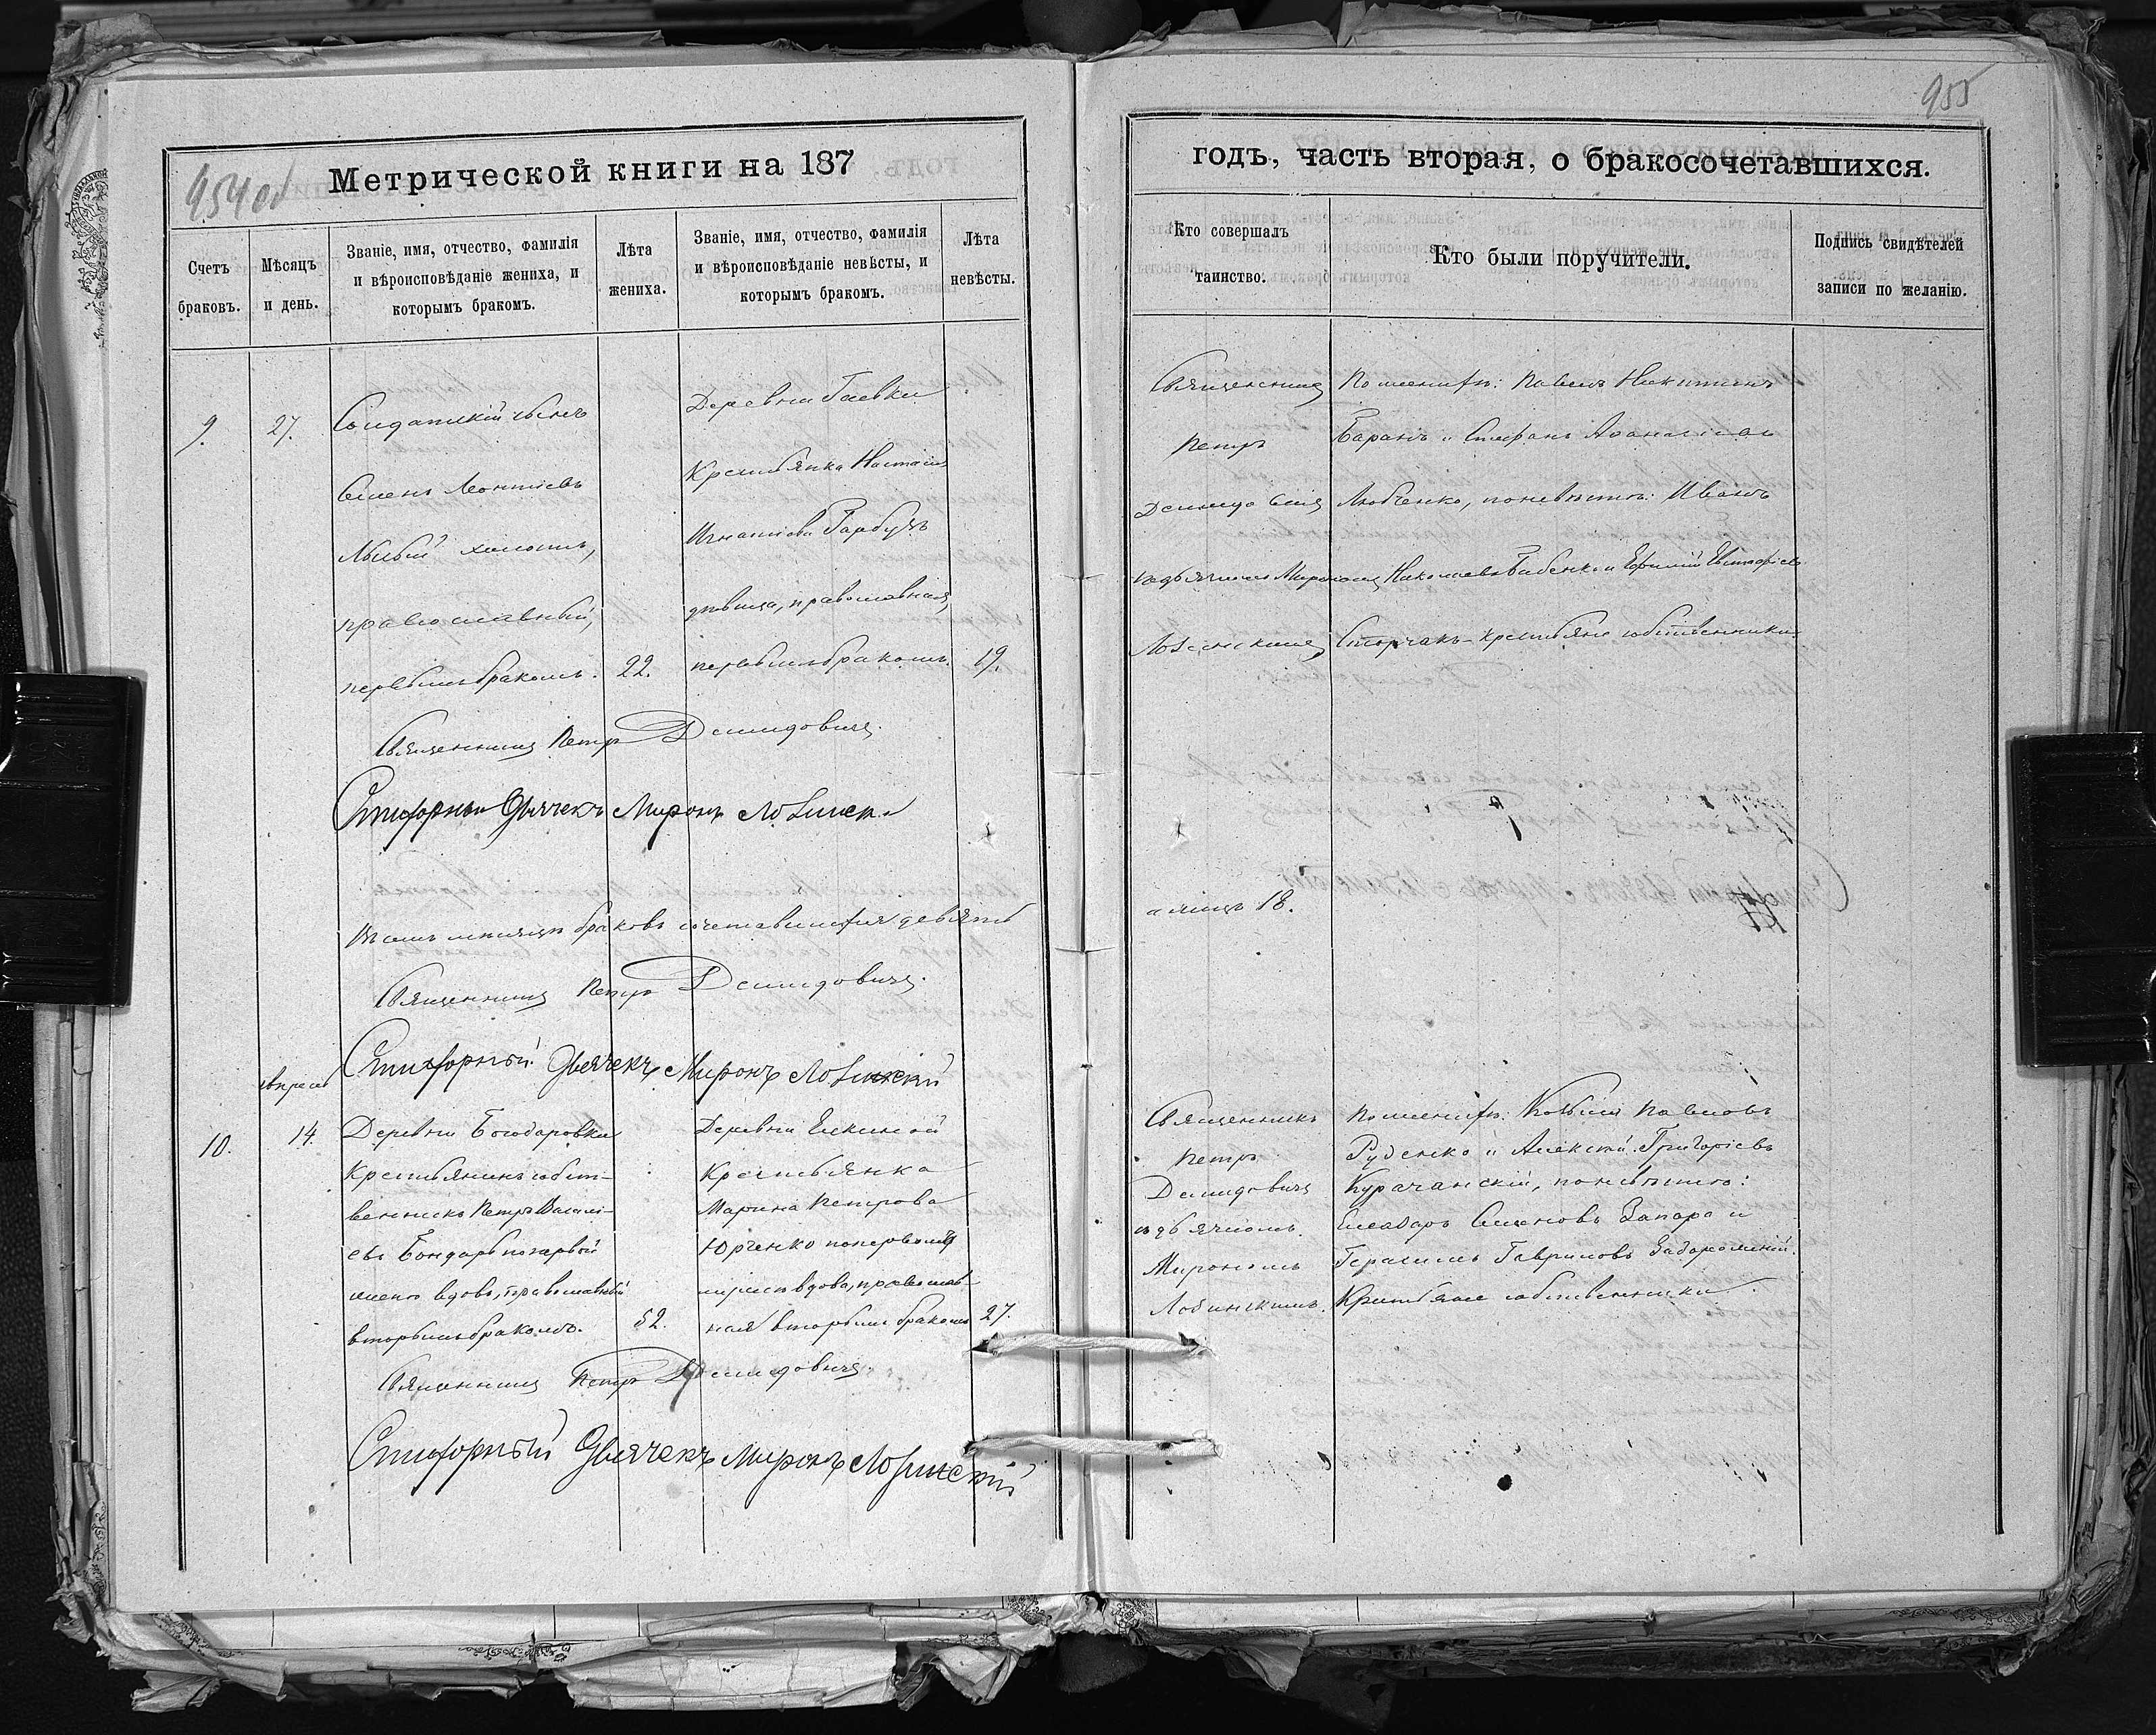 954 об
Метрической книги на 187
Счетъ браковъ.
Мѣсяцъ и день.
Званіе, имя, отчество, фамилія
и вѣроисповѣданіе жениха, и
которымъ бракомъ.
Лѣта жениха.
Званіе, имя, отчество, фамилія
и вѣроисповѣданіе невѣсты, и
которымъ бракомъ.
Лѣта невѣсты.
9.
27.
Солдатскій сынъ
Семенъ Леонтіевъ
православный,
первымъ бракомъ.
22.
Деревни Гаевки
Крестьянка Настасія
Игнатіева Гарбузъ
дѣвица, православная,
первымъ бракомъ.
19.
Священникъ Петръ Демидовичъ.
Стихорный Дьячекъ Миронъ Лозинскій
Въ семъ мѣсяцѣ браковъ сочетавшихся девять
Священникъ Петръ Демидовичъ.
Стихорный Дьячекъ Миронъ Лозинскій
апреля
10.
14.
Деревни Богодаровки
Крестьянинъ собст-
венникъ Петръ Василі-
евъ Бондарь по первой
женѣ вдовъ, православный
вторымъ бракомъ.
52.
Деревни
Крестьянка
Марина Петрова
Юрченко по первомъ
мужѣ вдова, православ-
ная вторымъ бракомъ
27.
Священникъ Петръ Демидовичъ.
Стихорный Дьячекъ Миронъ Лозинскій
955
годъ, часть вторая, о бракосочетавшихся.
Кто совершалъ таинство.
Кто были поручители.
Подпись свидѣтелей
записи по желанію.
Священникъ
Петръ
Демидовичъ
съ дьячкомъ Мирономъ
Лозинскимъ
По женихѣ: Павелъ Никитинъ
Баранъ и Стефанъ Афанасіевъ
Любченко, по невѣстѣ: Иванъ
Николаевъ Бабенко и Ефимій
Сторчакъ - крестьяне собственники.
а лицъ 18.
Священникъ
Петръ
Демидовичъ
съ дьячкомъ
Мирономъ
Лозинскимъ.
По женихѣ: Козьма Павловъ
Руденко и Алексій Григоріевъ
Курачанскій, по невѣстѣ:
Семеновъ Запара и
Герасимъ Гавриловъ Задорожній.
Крестьяне собственники.